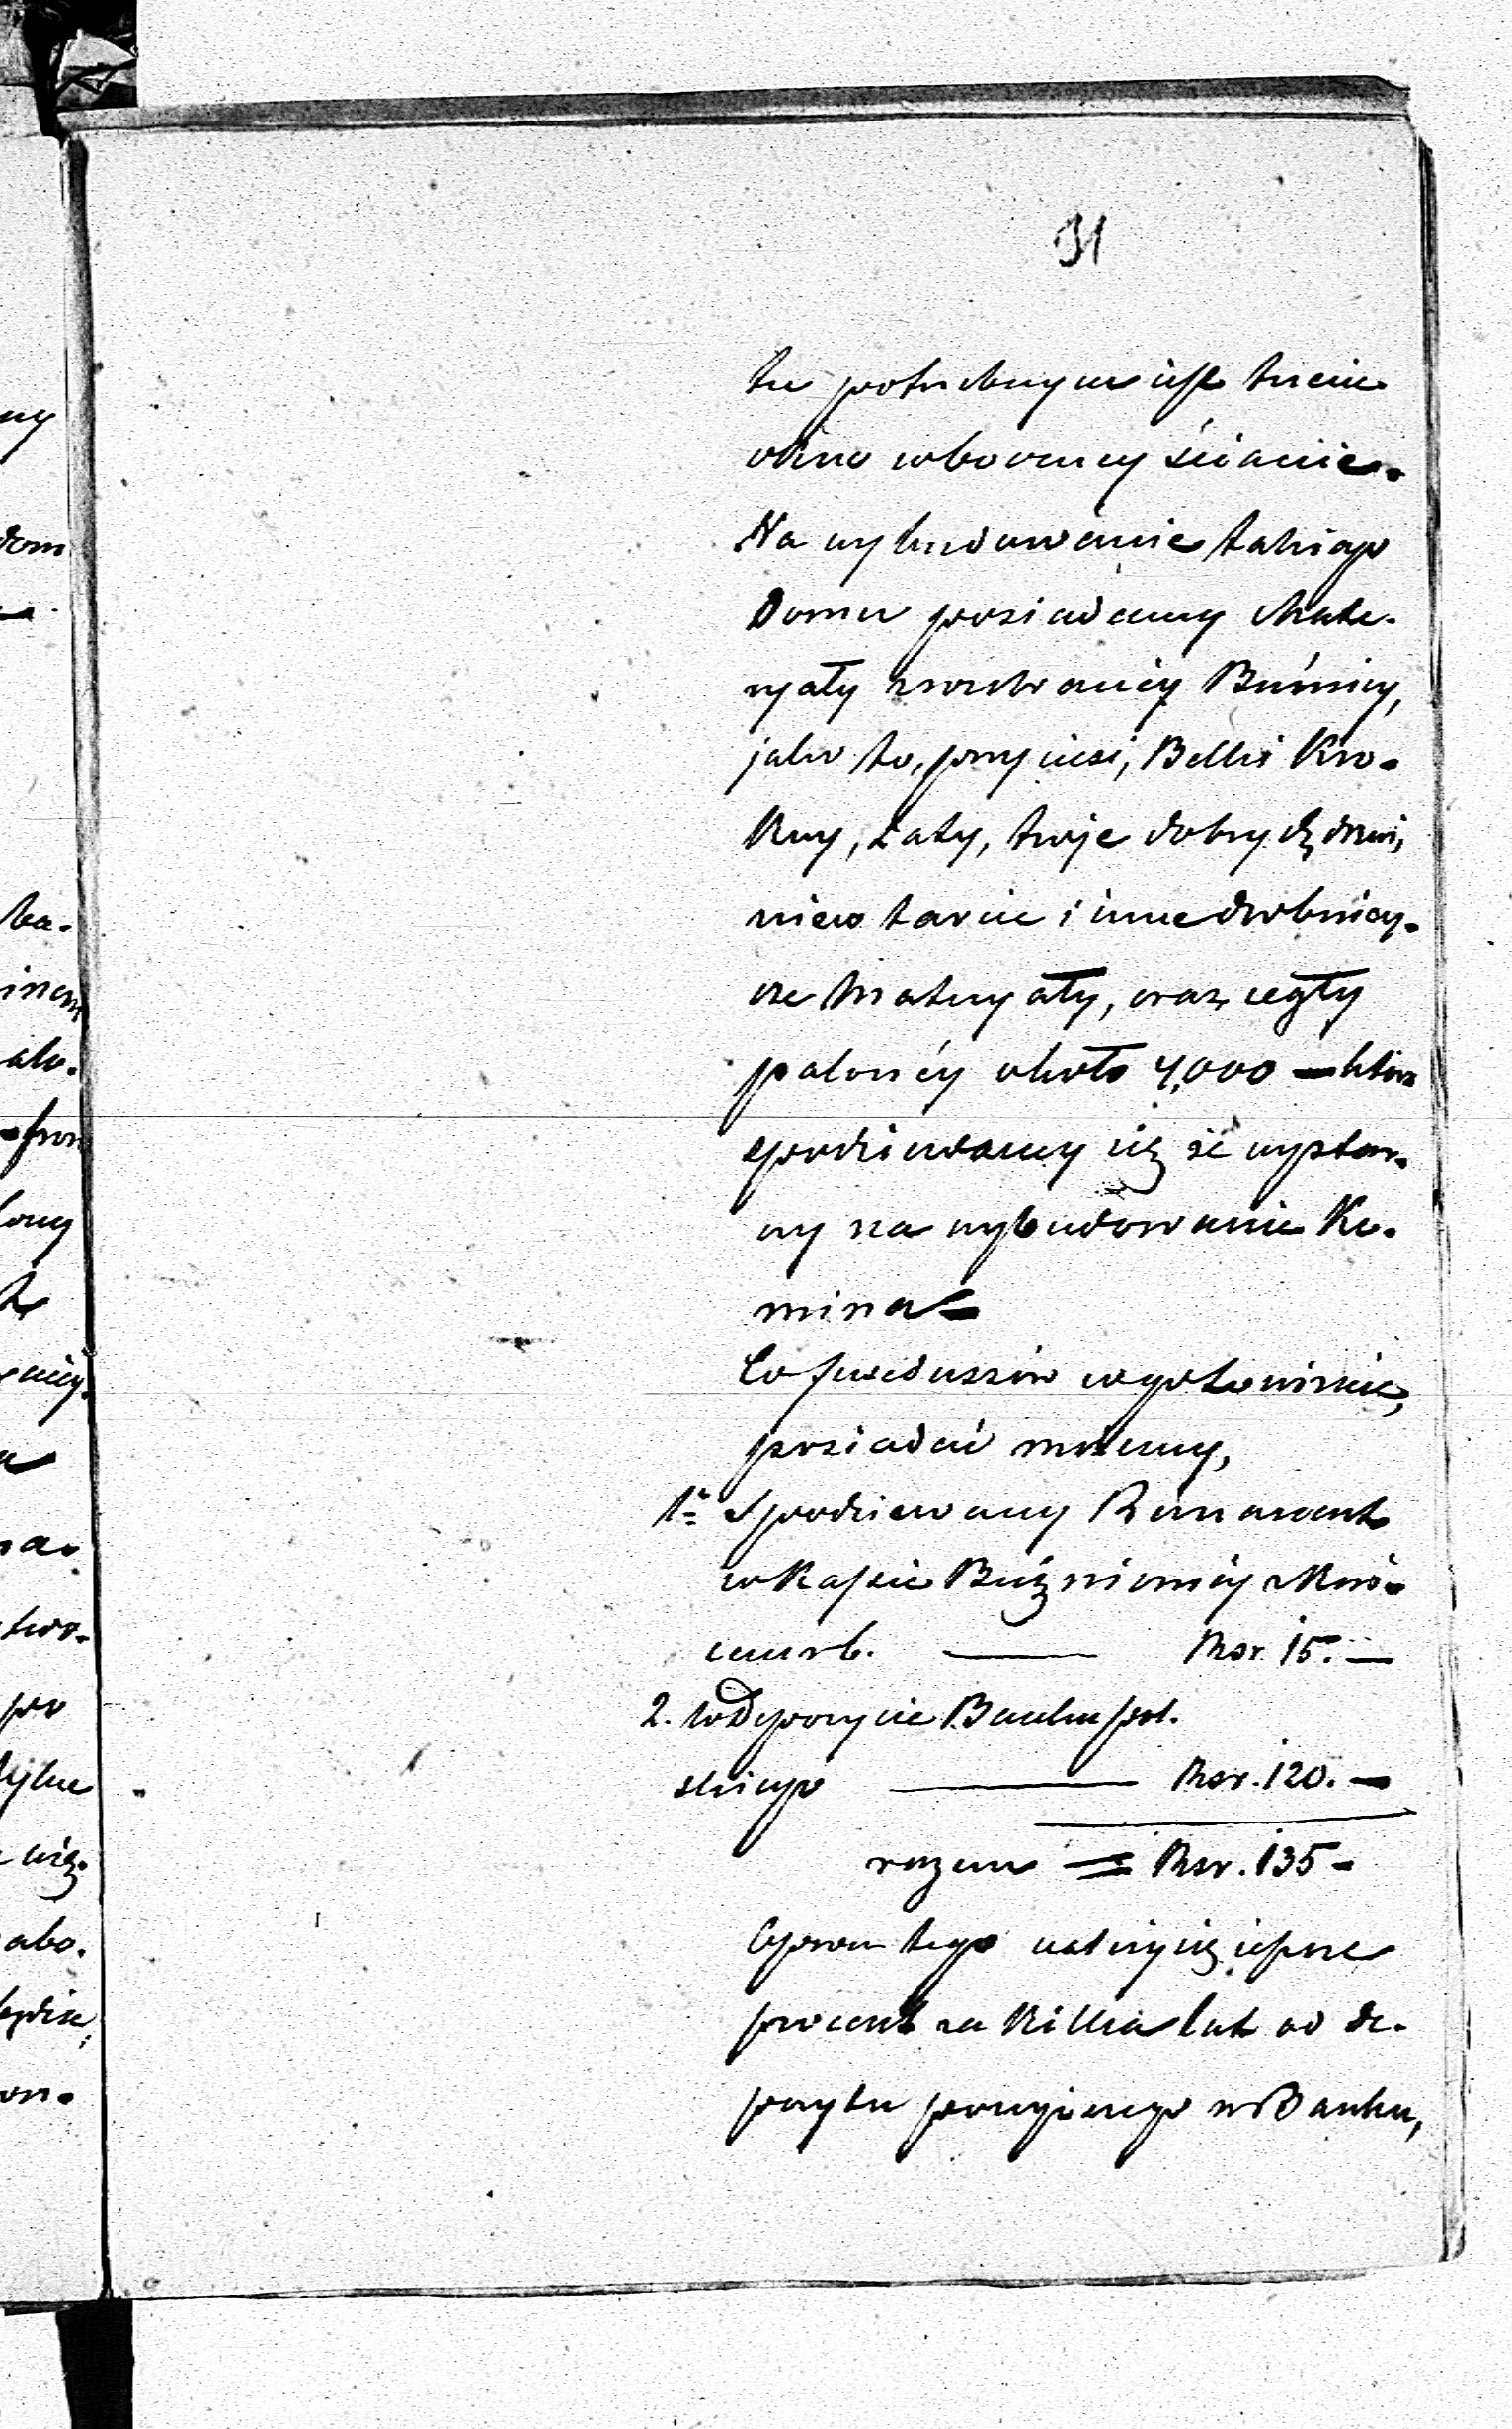 31
tu potrzebnym jest trzecie
okno w bocznej ścianie.
Na wybudowanie takiego
Domu posiadamy Mate-
ryały z rozebranéj Buźnicy,
jako to, przyciesi, Belki Kro-
kwy, Łaty, troje dobrych drzwi,
nieco tarcic i inne drobniey-
sze Materyały, oraz cegły
palonéj około 4,000 — która
spodziewamy się że wystar-
czy na wybudowanie Ko-
mina —
Co funduszów w gotowiźnie,
posiadać możemy,
1º Spodziewany Remanent
w Kassie Buźniczney z Koń-
cem rb. — Rsr. 15. —
2. w Depozycie Banku pol-
skiego — Rsr. 120. —
razem = Rsr. 135 -
Oprocz tego należy się jeszcze
procent za Kilka lat od de-
pozytu w Banku,